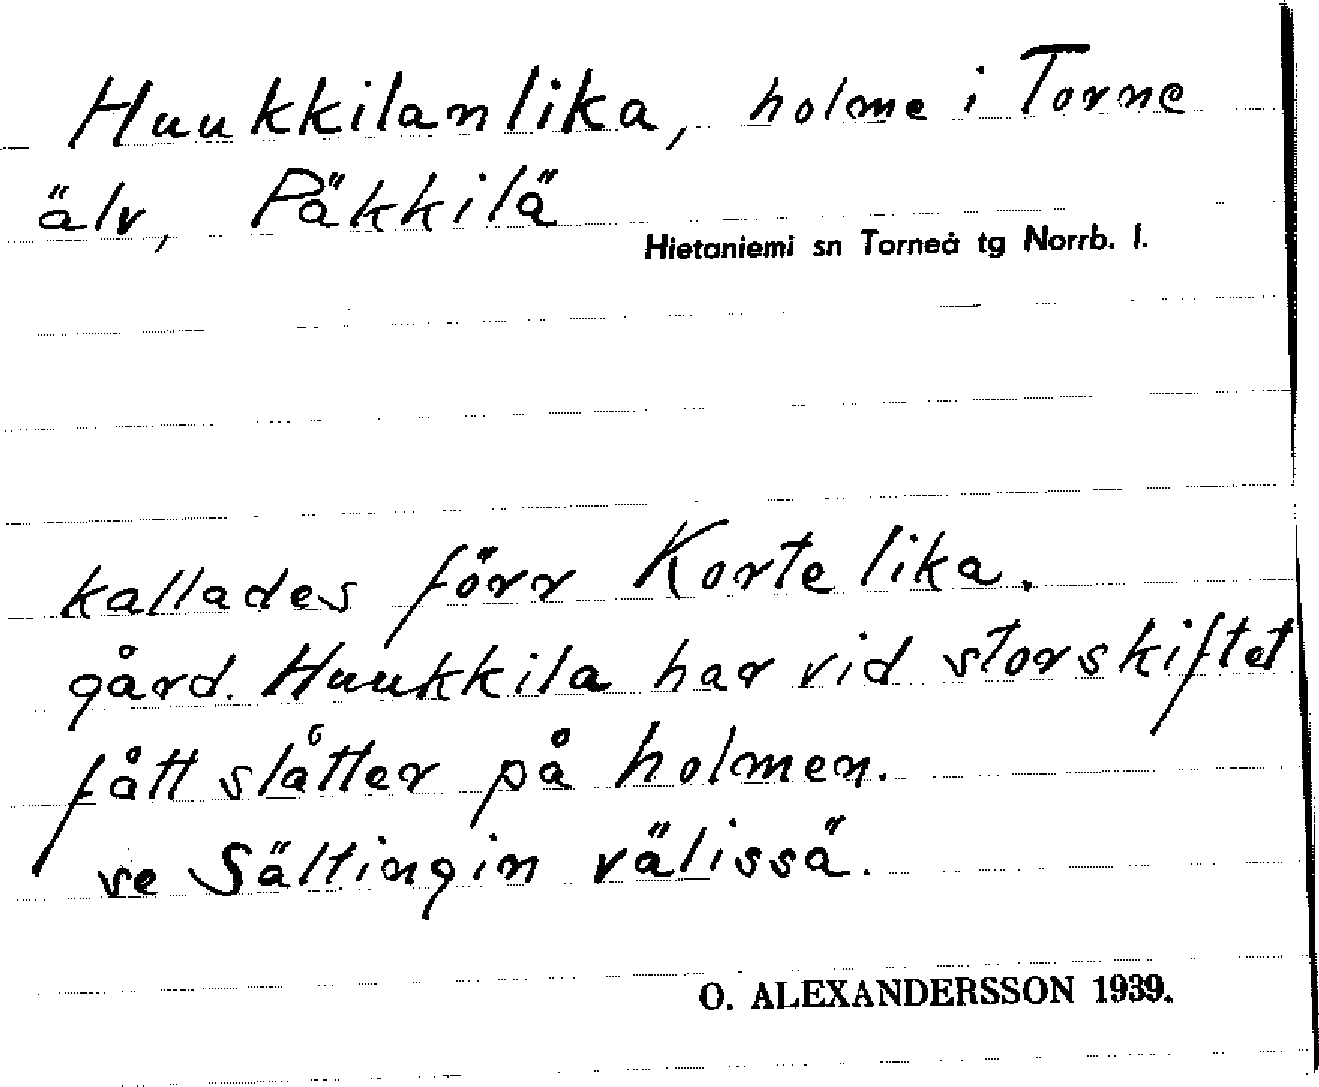 Huukkilanlika, holme i Torne
älv, Päkkilä
Hietaniemi sn Torneå tg Norrb. l.
kallades förr Kortelika.
gård. Huukkila har vid storskiftet
fått slåtter på holmen.
se Sältingin välissä.
O. ALEXANDERSSON 1939.